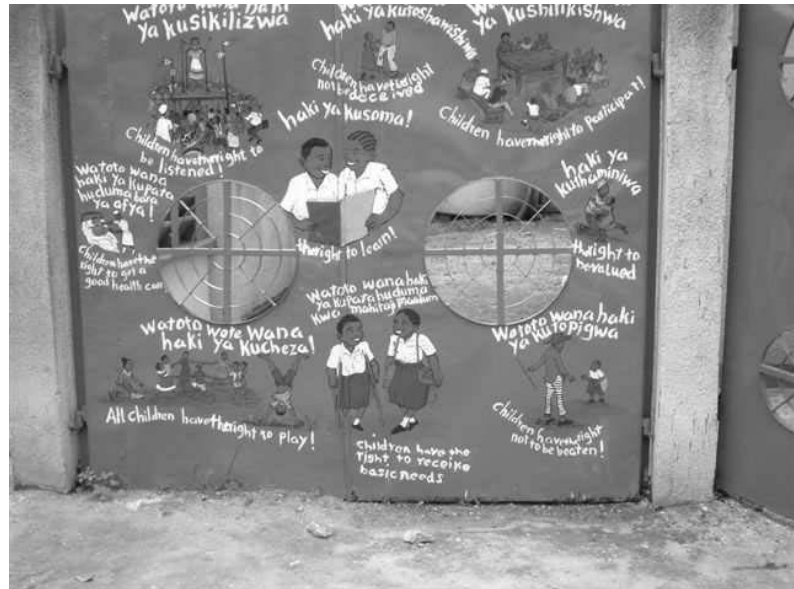 Watoto wana haki
ya kusikilizwa
Children have the right to
be listened!
haki ya kutoshawishiwa
Children have the right
not be deceived
ya kushilikishwa
Children have the right to participat!
haki ya kusoma!
the right to learn!
Watoto wana
haki ya Kupata
huduma bora
ya afya!
Children have the
right to get a
good health care
haki ya
kuthaminiwa
the right to
be valued
Watoto wote wana
haki ya Kucheza!
All children have the right to play!
Watoto wana haki
ya Kupata huduma
kwa mahitaji muhimu
Children have the
right to receive
basic needs
Watoto wana haki
ya kutopigwa
children have the right
not to be beaten!